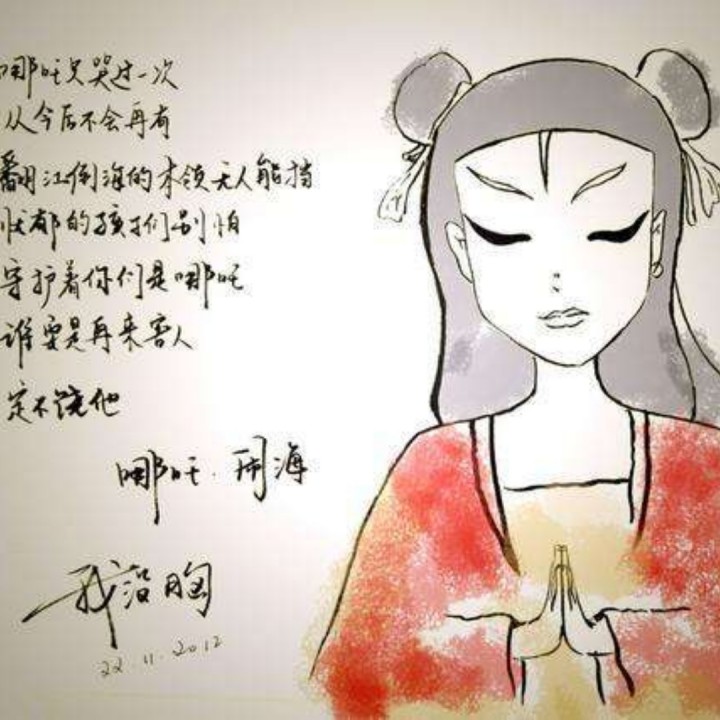 哪吒只哭过一次
从今后不会再有
翻江倒海的本领无人能挡
都的孩子们别怕
守护着你们是哪吒
谁要是再来害人
定不饶他
哪吒·闹海
我没胸
22.11.2012